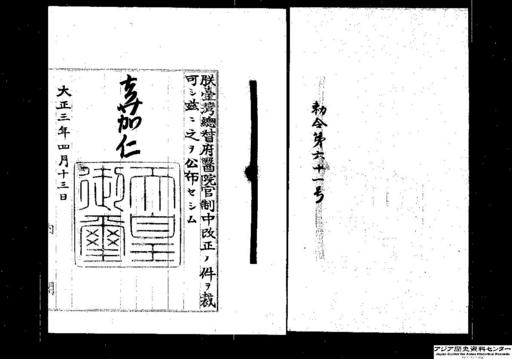 勅令第六十一号
朕臺灣總督府醫院官制中改正ノ件ヲ裁
可シ茲ニ之ヲ公布セシム
嘉仁
天皇
御璽
大正三年四月十三日
内閣
アジア歴史資料センター
Japan Center for Asian Historical Records